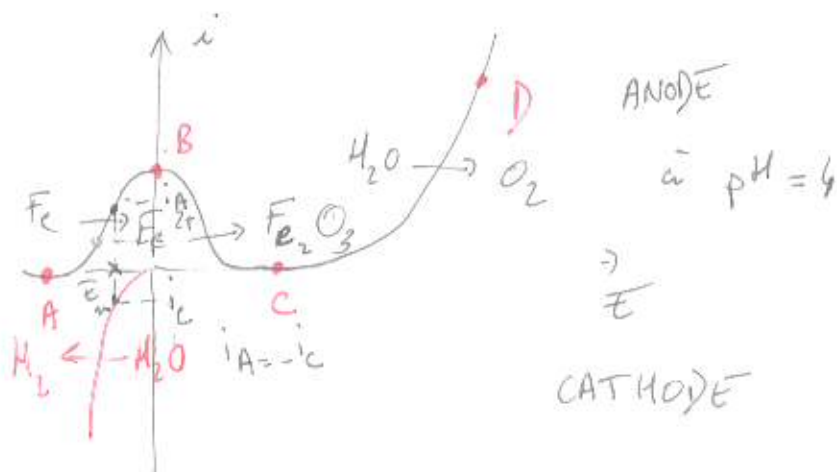 i
B
D
ANODE
H₂O → O₂
à pH = 4
Fe → Fe²⁺ → Fe₂O₃
iA
A
C
E
Em
ic
H₂ ← H₂O
iA = -ic
CATHODE